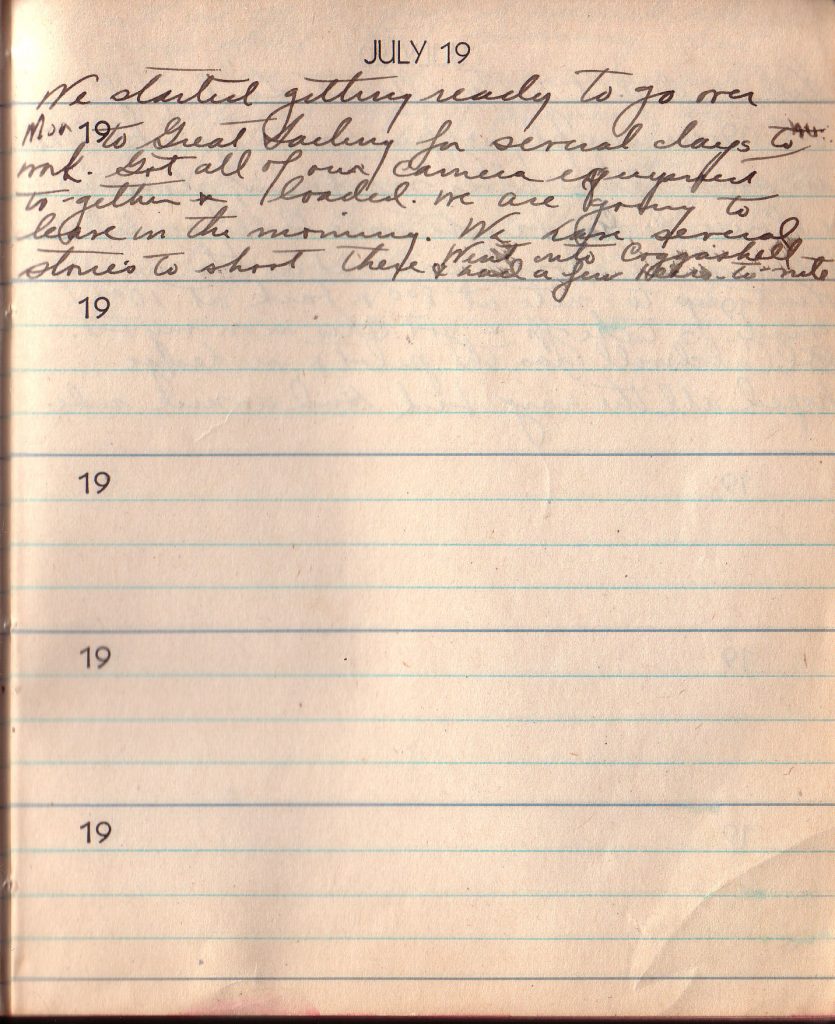 JULY 19
We started getting ready to go over
Mon 19 to Great Sailing for several days to
work. Got all of our camera equipment
to-gether & loaded. we are going to
leave in the morning. We have several
stories to shoot there Went into Coggashell
& had a few Beers to-nite
19
19
19
19